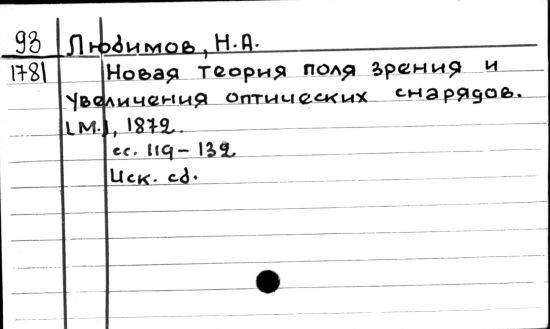 93 Любимов, Н.А.
1781 Новая теория поля зрения и
увеличения оптических снарядов.
[М.], 1872.
сс. 119-132
Иск. сб.